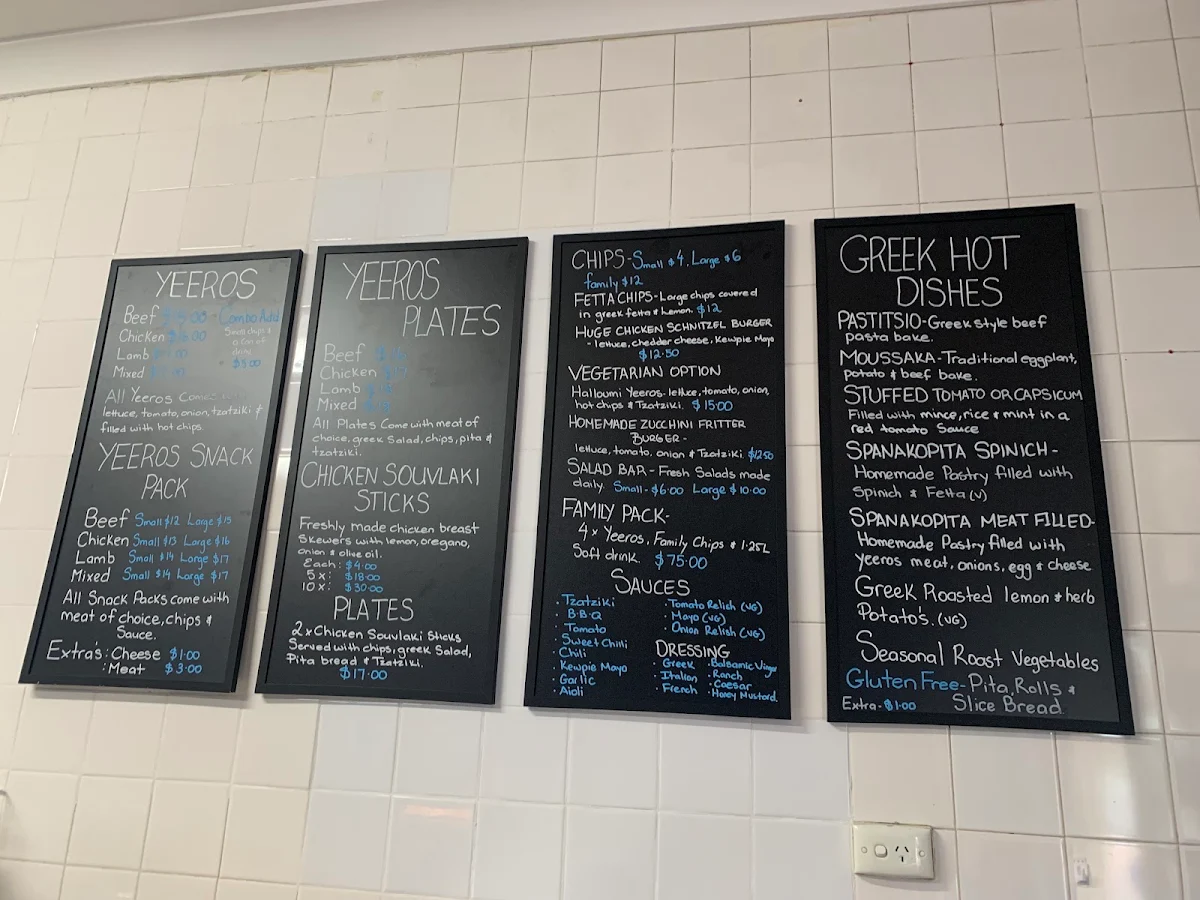 YEEROS
Beef $15.00 - Combo Add
Chicken $16.00 Small chips &
a can of
drink
Lamb
Mixed $5.00
All Yeeros Come with
lettuce, tomato, onion, tzatziki &
filled with hot chips.
YEEROS SNACK
PACK
Beef Small $12 Large $15
Chicken Small $13 Large $16
Lamb Small $14 Large $17
Mixed Small $14 Large $17
All Snack Packs come with
meat of choice, chips &
Sauce.
Extra's: Cheese $1.00
: Meat $3.00
YEEROS
PLATES
Beef
Chicken
Lamb
Mixed
All Plates Come with meat of
choice, greek Salad, chips, pita &
tzatziki.
CHICKEN SOUVLAKI
STICKS
Freshly made chicken breast
Skewers with lemon, oregano,
onion & olive oil.
Each: $4.00
5 x: $18.00
10 x: $30.00
PLATES
2 x Chicken Souvlaki Sticks
Served with chips, greek Salad,
Pita bread & Tzatziki.
$17.00
CHIPS - Small $4. Large $6
family $12
FETTA CHIPS - Large chips covered
in greek fetta & lemon. $12
HUGE CHICKEN SCHNITZEL BURGER
- lettuce, chedder cheese, Kewpie Mayo
$12.50
VEGETARIAN OPTION
Halloumi Yeeros - lettuce, tomato, onion,
hot chips & Tzatziki. $15.00
HOMEMADE ZUCCHINI FRITTER
BURGER -
lettuce, tomato, onion & Tzatziki. $12.50
SALAD BAR - Fresh Salads made
daily. Small - $6.00 Large $10.00
FAMILY PACK -
4 x Yeeros, Family Chips & 1.25L
Soft drink. $75.00
SAUCES
· Tzatziki
· B.B.Q
· Tomato
· Sweet Chilli
· Chili
· Kewpie Mayo
· Garlic
· Aioli
· Tomato Relish (VG)
· Mayo (VG)
· Onion Relish (VG)
DRESSING
· Greek · Balsamic Vinger
· Italian · Ranch
· French · Caesar
· Honey Mustard.
GREEK HOT
DISHES
PASTITSIO - Greek style beef
pasta bake.
MOUSSAKA - Traditional eggplant,
potato & beef bake.
STUFFED TOMATO OR CAPSICUM
Filled with mince, rice & mint in a
red tomato Sauce
SPANAKOPITA SPINICH -
Homemade Pastry filled with
Spinich & Fetta (V)
SPANAKOPITA MEAT FILLED -
Homemade Pastry filled with
yeeros meat, onions, egg & cheese
Greek Roasted lemon & herb
Potato's. (VG)
Seasonal Roast Vegetables
Gluten Free - Pita, Rolls &
Extra - $1.00 Slice Bread